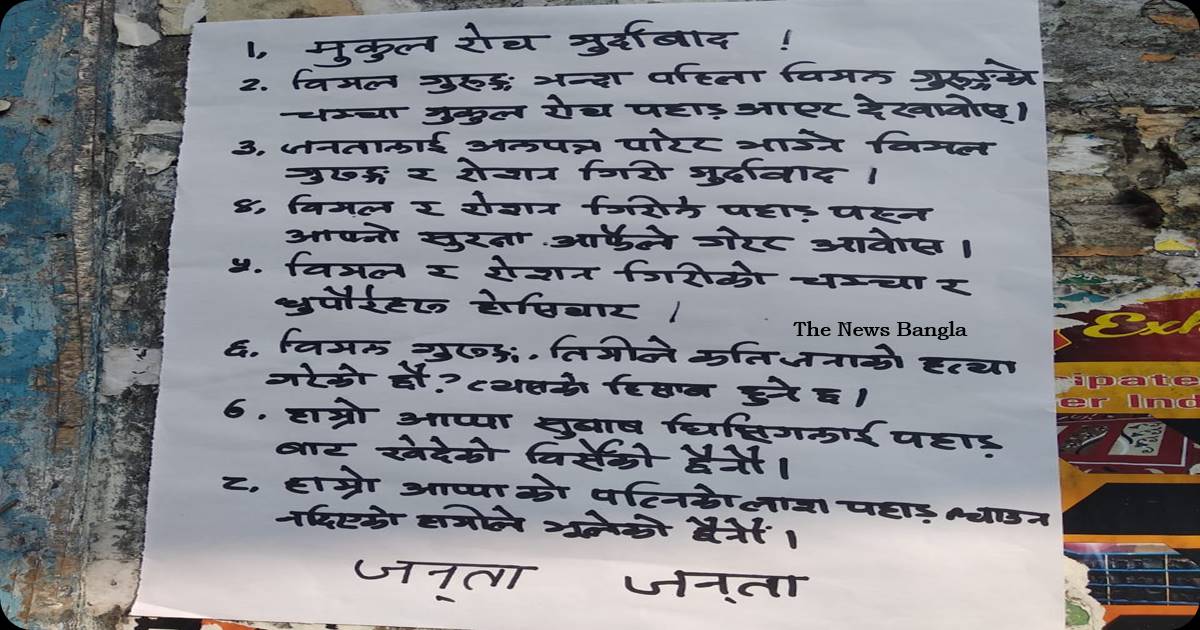 १, मुकुल रोय मुर्दाबाद !
२. विमल गुरुङ्ग भन्दा पहिला विमल गुरुङ्गको
चम्चा मुकुल रोय पहाड़ आएर देखावोस्।
३, जनतालाई अलपत्र पारेर भाग्ने विमल
गुरुङ्ग र रोशन गिरी मुर्दावाद ।
४, विमल र रोशन गिरीले पहाड़ पस्न
आफ्नो सुरक्षा आफैले गरेर आवोस ।
५. विमल र रोशन गिरीको चम्चा र
धुपौरेहरु होसियार ।
The News Bangla
६. विमल गुरुङ्ग. तिमीले कति जनाको हत्या
गरेको छौ? त्यसको हिसाब हुने छ।
७. हाम्रो आप्पा सुवाष घिसिंगलाई पहाड़
बाट खेदेको विर्सेको छैनौं।
८, हाम्रो आप्पाको पत्निको लाश पहाड़ ल्याउन
नदिएको हामीले भुलेको छैनौं ।
जन्ता जन्ता
Exh
ipate
er Ind